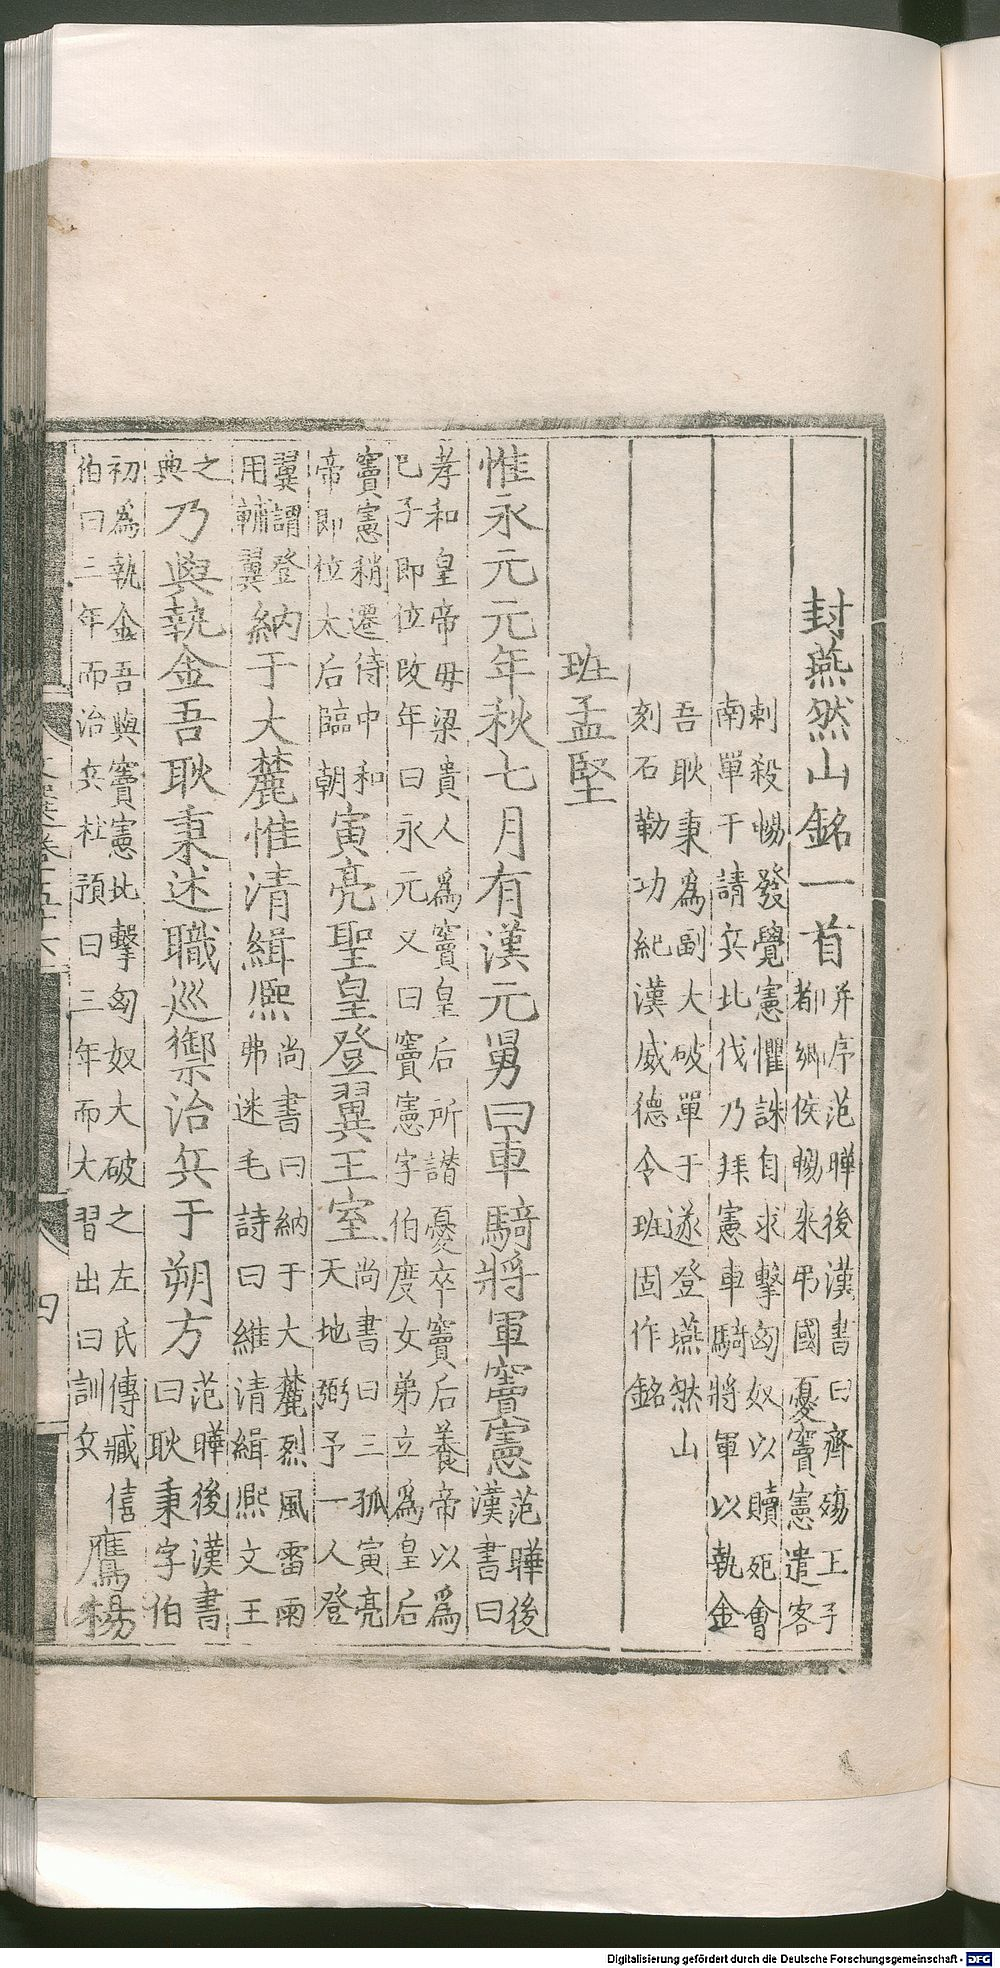 封燕然山銘一首并序范曄後漢書曰齊殤王子
都鄉侯暢來弔國憂竇憲遣客
刺殺暢發覺憲懼誅自求擊匈奴以贖死會
南單于請兵北伐乃拜憲車騎將軍以執金
吾耿秉為副大破單于遂登燕然山
刻石勒功紀漢威德令班固作銘
班孟堅
惟永元元年秋七月有漢元舅曰車騎將軍竇憲范曄後
漢書曰
孝和皇帝毋梁貴人為竇皇后所譖憂卒竇后養帝以為
巳子即位改年曰永元又曰竇憲字伯度女弟立為皇后
竇憲稍遷侍中和
帝即位太后臨朝
寅亮聖皇登翼王室尚書曰三孤寅亮
天地弼予一人登
翼謂登
用輔翼
納于大麓惟清緝熙尚書曰納于大麓烈風雷雨
弗迷毛詩曰維清緝熙文王
之
典
乃與執金吾耿秉述職巡禦治兵于朔方范曄後漢書
曰耿秉字伯
初為執金吾與竇憲北擊匈奴大破之左氏傳臧僖
伯曰三年而治兵杜預曰三年而大習出曰訓兵
鷹揚
文選卷五十六
四
Digitalisierung gefördert durch die Deutsche Forschungsgemeinschaft - DFG